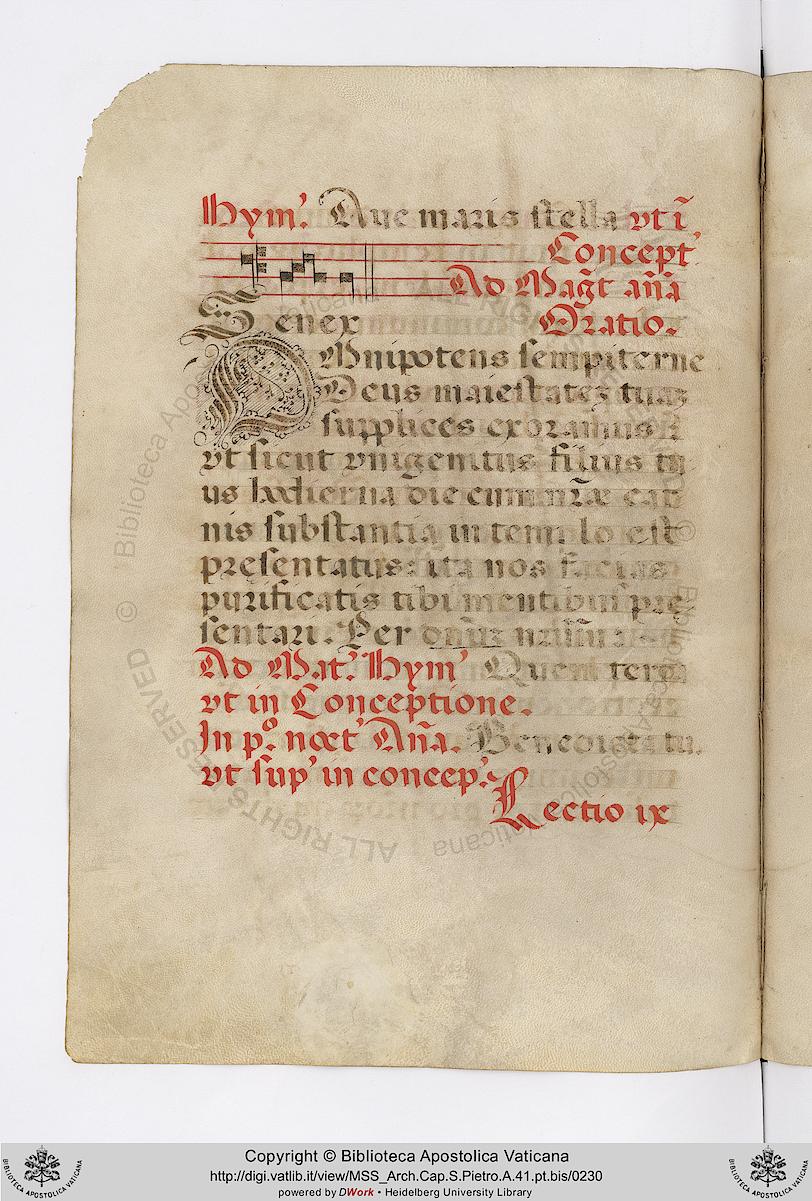 Hym̕. Aue maris stella vt ī
Concept̕
Ad Mag̃t añã
Senex Oratio.
OMnipotens sempiterne
Deus maiestateꝫ tuaꝫ
supplices exoramus:
vt sicut vnigenitus filius tu
us hodierna die cum nr̃æ car
nis substantia in templo est
presentatus: ita nos facias
purificatis tibi mentibus pre
sentari. Per dñuꝫ nr̃ũm
Ad Mat̕. Hym̕ Quem terra
vt in Conceptione.
In p.º noct̕ Añã. Benedicta tu.
vt sup̕ in concep̕.
Lectio ix
© Biblioteca Apostolica Vaticana
ALL RIGHTS RESERVED
Copyright © Biblioteca Apostolica Vaticana
http://digi.vatlib.it/view/MSS_Arch.Cap.S.Pietro.A.41.pt.bis/0230
powered by DWork • Heidelberg University Library